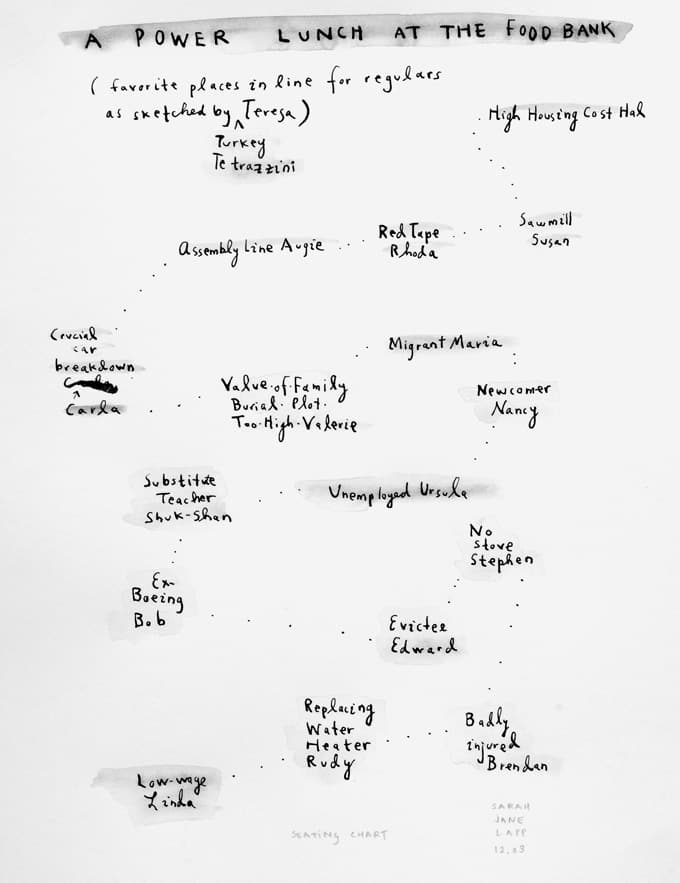 A POWER LUNCH AT THE FOOD BANK
(favorite places in line for regulars
as sketched by Teresa)
^
Turkey
Tetrazzini
High Housing Cost Hal
Sawmill
Susan
Red Tape
Rhoda
Assembly Line Augie
Crucial
car
breakdown
^
Carla
Value-of-Family
Burial-Plot-
Too-High-Valerie
Migrant Maria
Newcomer
Nancy
Unemployed Ursula
Substitute
Teacher
Shuk-Shan
Ex-
Boeing
Bob
Evictee
Edward
No
Stove
Stephen
Badly
injured
Brendan
Replacing
Water
Heater
Rudy
Low-wage
Linda
SEATING CHART
SARAH
JANE
LAPP
12.03